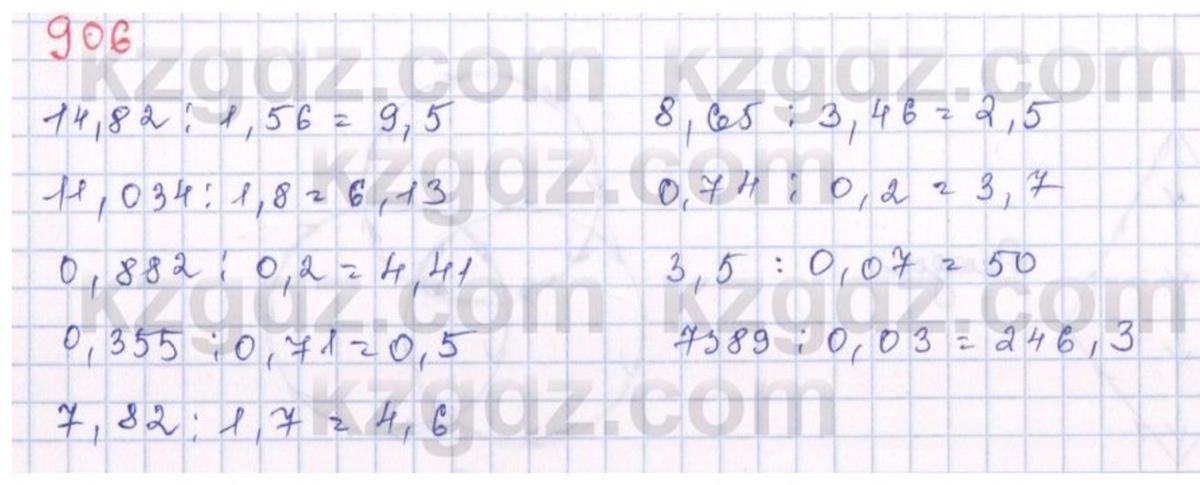 906
14,82 : 1,56 = 9,5
8,65 : 3,46 = 2,5
11,034 : 1,8 = 6,13
0,74 : 0,2 = 3,7
0,882 : 0,2 = 4,41
3,5 : 0,07 = 50
0,355 : 0,71 = 0,5
7389 : 0,03 = 246,3
7,82 : 1,7 = 4,6
kzgdz.com kzgdz.com
kzgdz.com
kzgdz.com kzgdz.com
kzgdz.com